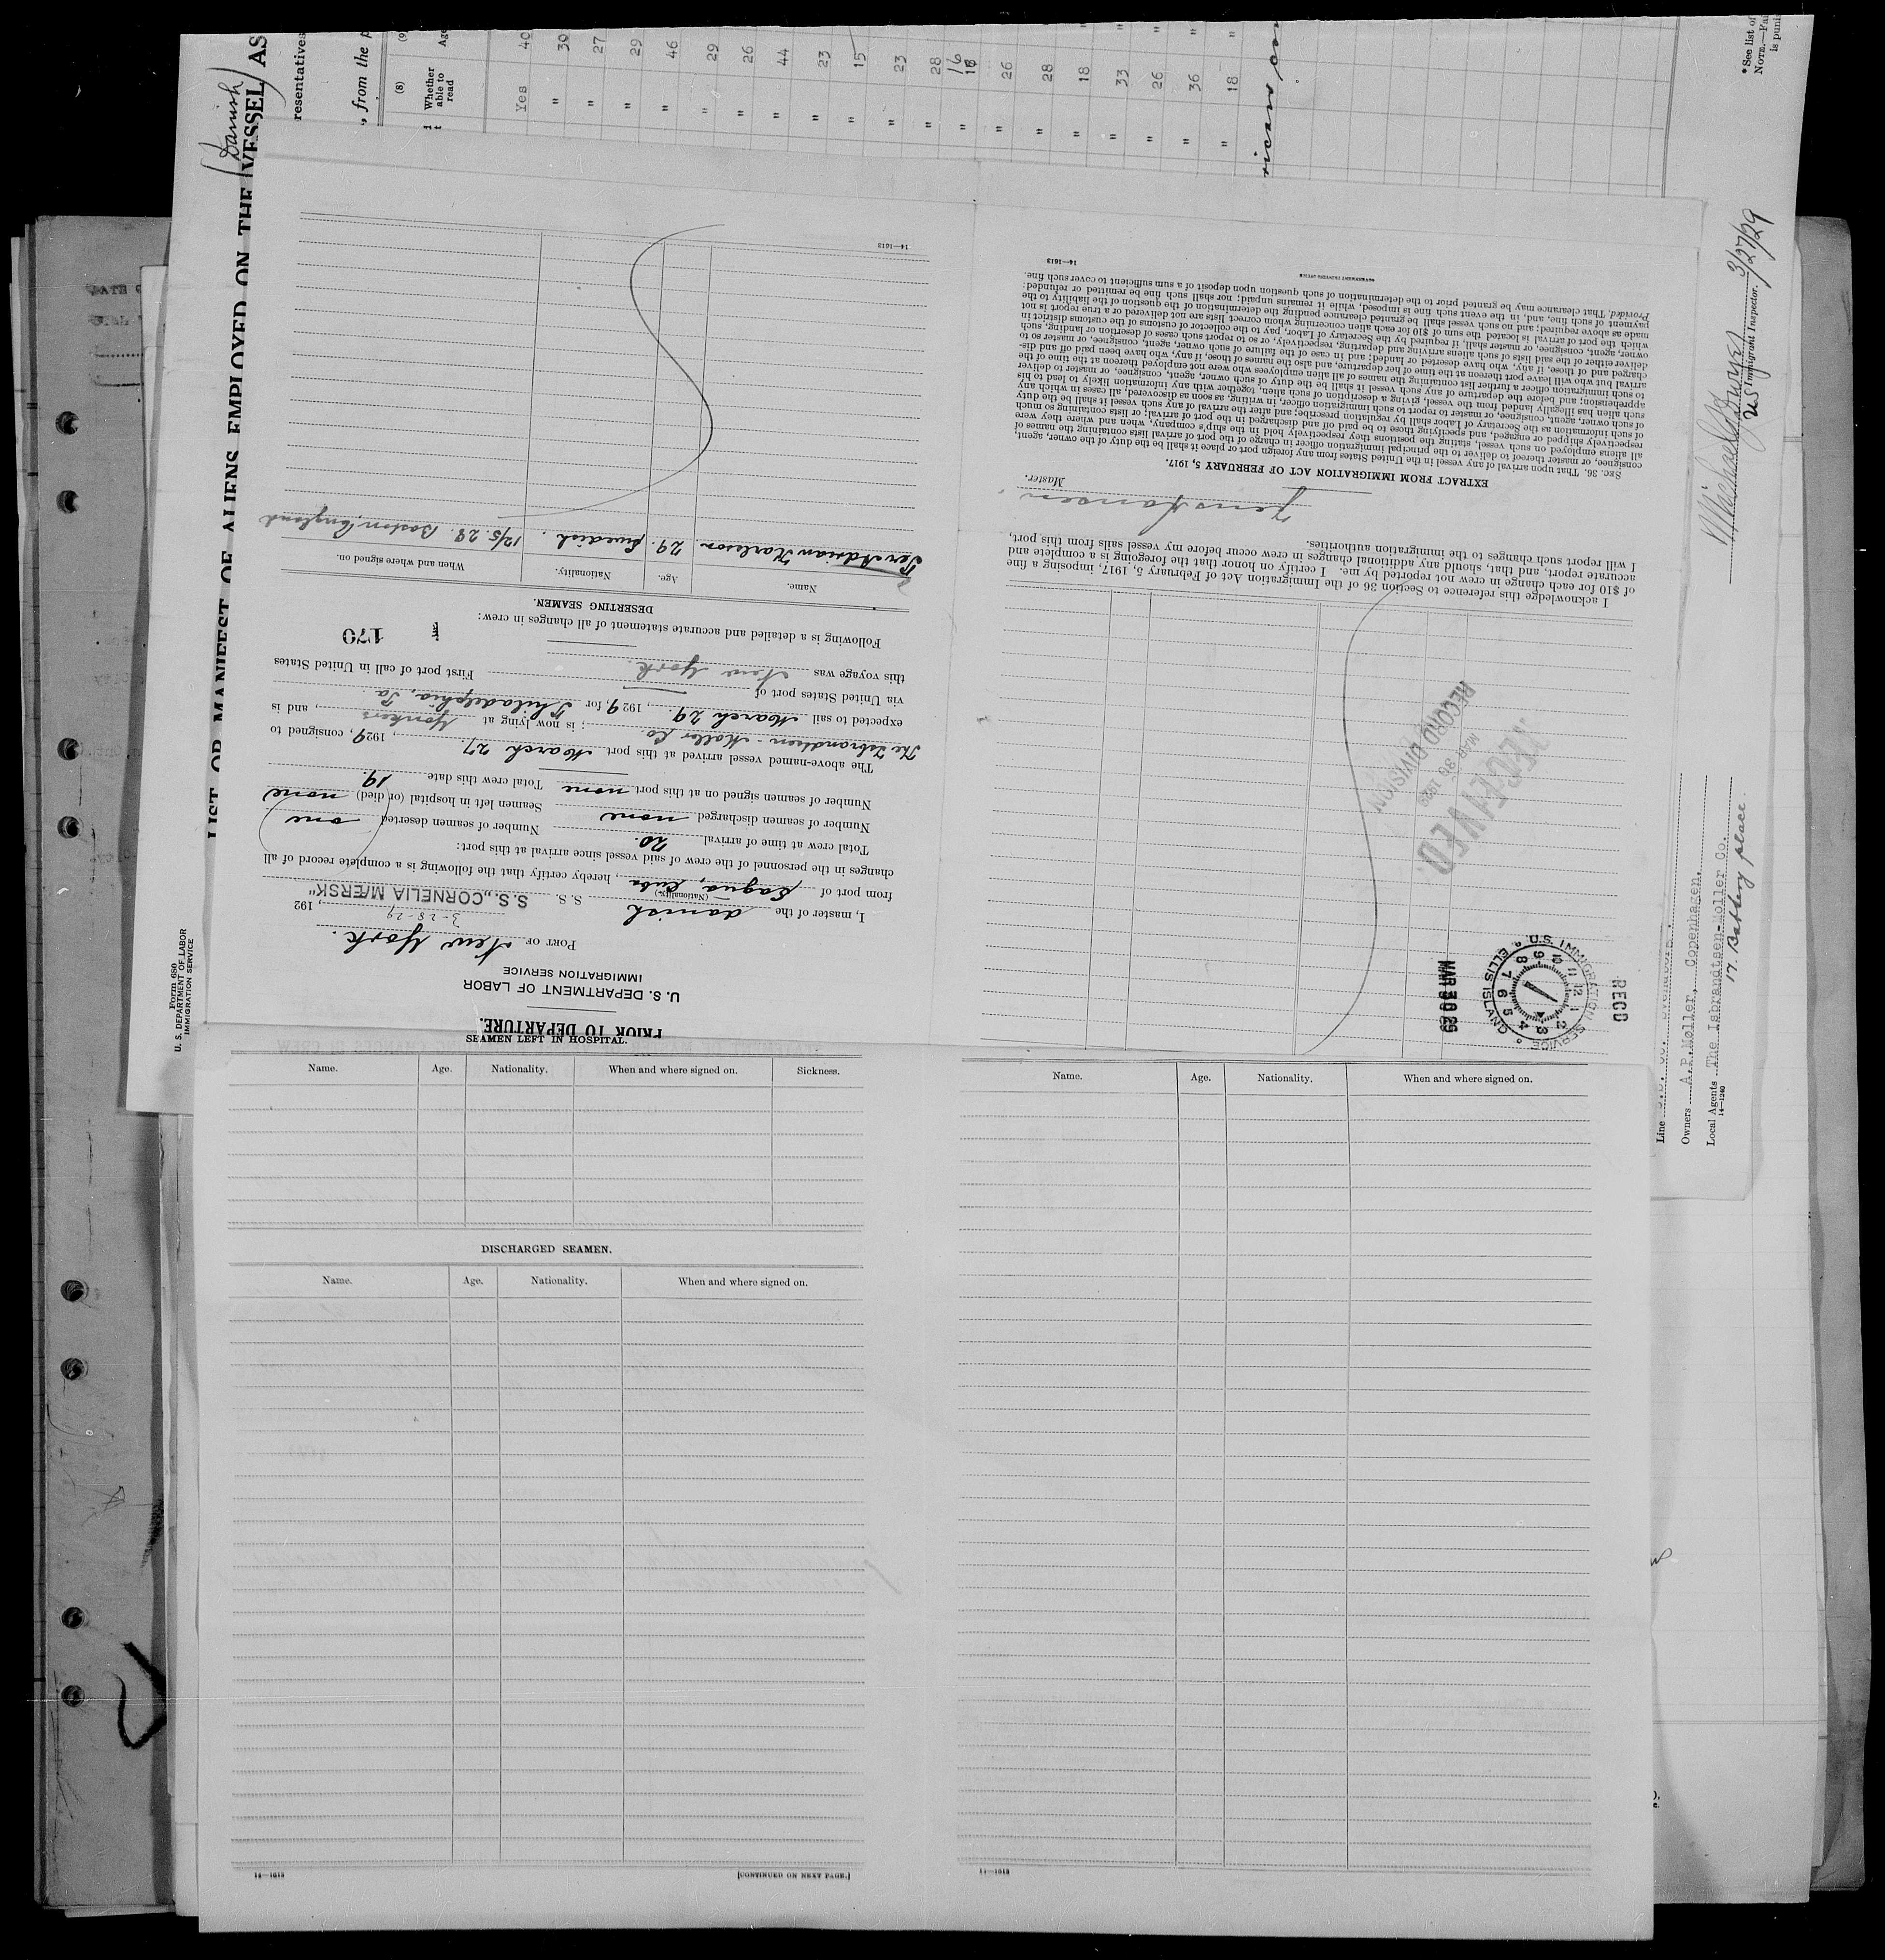 PRIOR TO DEPARTURE.
U. S. DEPARTMENT OF LABOR
IMMIGRATION SERVICE
PORT OF New York.
3-28-29, 192
I, master of the danish S. S. S.S. „CORNELIA MÆRSK"
(Nationality.)
from port of Sagua, Cuba, hereby certify that the following is a complete record of all
changes in the personnel of the crew of said vessel since arrival at this port:
Total crew at time of arrival 20. Number of seamen deserted one
Number of seamen discharged none Seamen left in hospital (or died) none
Number of seamen signed on at this port none Total crew this date 19.
The above-named vessel arrived at this port March 27, 1929, consigned to
The Isbrandtsen-Moller Co.; is now lying at Yonkers, and is
expected to sail March 29., 1929, for Philadelphia, Pa
via United States port of
this voyage was New York. First port of call in United States
Following is a detailed and accurate statement of all changes in crew:
170
DESERTING SEAMEN.
Name. Age. Nationality. When and where signed on.
Per Adrian Karlsson. 29. Swedish. 12/5.28. Boston, England
14—1613
I acknowledge this reference to Section 36 of the Immigration Act of February 5, 1917, imposing a fine
of $10 for each change in crew not reported by me. I certify on honor that the foregoing is a complete and
accurate report, and that, should any additional changes in crew occur before my vessel sails from this port,
I will report such changes to the immigration authorities.
Jens Hansen
Master.
EXTRACT FROM IMMIGRATION ACT OF FEBRUARY 5, 1917.
SEC. 36. That upon arrival of any vessel in the United States from any foreign port or place it shall be the duty of the owner, agent,
consignee, or master thereof to deliver to the principal immigration officer in charge of the port of arrival lists containing the names of
all aliens employed on such vessel, stating the positions they respectively hold in the ship's company, when and where they were
respectively shipped or engaged, and specifying those to be paid off and discharged in the port of arrival; or lists containing so much
of such information as the Secretary of Labor shall by regulation prescribe; and after the arrival of any such vessel it shall be the duty
of such owner, agent, consignee, or master to report to such immigration officer, in writing, as soon as discovered, all cases in which any
such alien has illegally landed from the vessel, giving a description of such alien, together with any information likely to lead to his
apprehension; and before the departure of any such vessel it shall be the duty of such owner, agent, consignee, or master to deliver
to such immigration officer a further list containing the names of all alien employees who were not employed thereon at the time of the
arrival but who will leave port thereon at the time of her departure, and also the names of those, if any, who have been paid off and dis-
charged and of those, if any, who have deserted or landed; and in case of the failure of such owner, agent, consignee, or master so to
deliver either of the said lists of such aliens arriving and departing, respectively, or so to report such cases of desertion or landing, such
owner, agent, consignee, or master shall, if required by the Secretary of Labor, pay to the collector of customs of the customs district in
which the port of arrival is located the sum of $10 for each alien concerning whom correct lists are not delivered or a true report is not
made as above required; and no such vessel shall be granted clearance pending the determination of the question of the liability to the
payment of such fine, and, in the event such fine is imposed, while it remains unpaid; nor shall such fine be remitted or refunded:
Provided, That clearance may be granted prior to the determination of such question upon deposit of a sum sufficient to cover such fine.
GOVERNMENT PRINTING OFFICE
14—1613
RECEIVED
MAR 26 1929
RECORD DIVISION
RECD
U.S. IMMIGRATION SERVICE
ELLIS ISLAND
MAR 30 29
SEAMEN LEFT IN HOSPITAL.
Name. Age. Nationality. When and where signed on. Sickness.
DISCHARGED SEAMEN.
Name. Age. Nationality. When and where signed on.
14—1613 [CONTINUED ON NEXT PAGE.]
Name. Age. Nationality. When and where signed on.
14—1613
Form 680
U. S. DEPARTMENT OF LABOR
IMMIGRATION SERVICE
LIST OR MANIFEST OF ALIENS EMPLOYED ON THE VESSEL AS
(Danish)
resentatives
, from the p
(8) (9)
Whether able to read
Age
Yes 40
" 30
" 27
" 29
" 46
" 29
" 26
" 44
" 23
" 15
" 23
" 28
" 16
" 26
" 28
" 18
" 33
" 26
" 36
" 18
3/27/29
US Immigrant Inspector.
*See list of
NOTE.—
is puni
Line
Owners A.P.Moller, Copenhagen.
Local Agents The Isbrandtsen-Moller Co.
14—1240
17. Battery place.